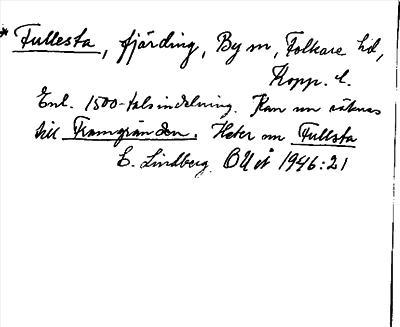 * Fullesta, fjärding, By sn, Folkare hd,
Kopp. l.
Enl. 1500-talsindelning. Kan nu räknas
till Framgränden. Heter nu Fullsta
E. Lindberg. OUÅ 1946:21